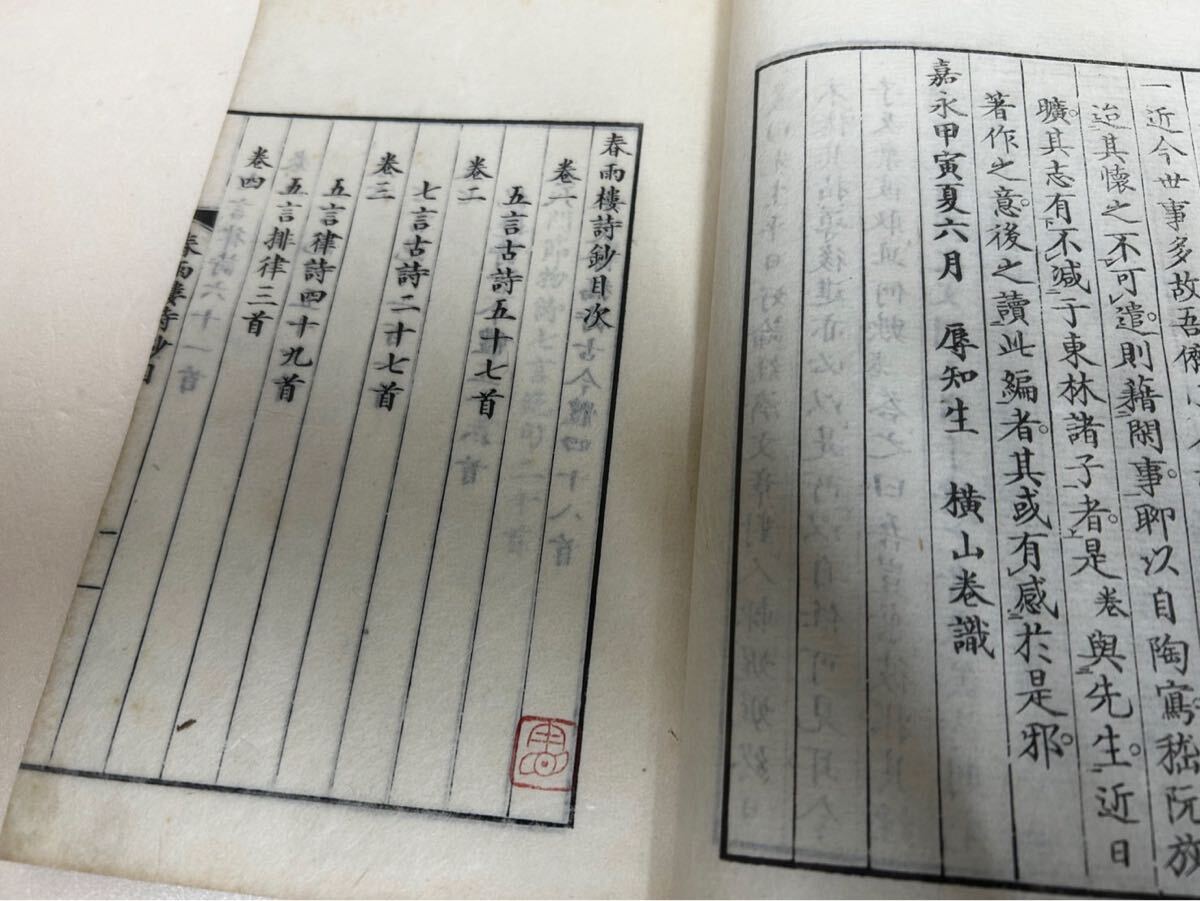 一近今世事多故吾儕
迨其懷之不可遣則藉閑事聊以自陶寫嵇阮放
曠其志有不減于東林諸子者是卷與先生近日
著作之意後之讀此編者其或有感於是邪
嘉永甲寅夏六月 辱知生 橫山卷識
春雨樓詩鈔目次
卷一
五言古詩五十七首
卷二
七言古詩二十七首
卷三
五言律詩四十九首
五言排律三首
卷四
春雨樓詩鈔目
一